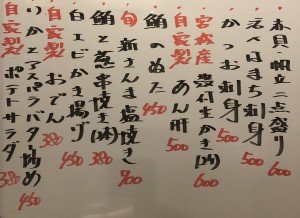 春貝・帆立二点盛り
天然はまち刺身 500
かつお刺身 500
宮城産 殻付生かき(2ケ) 600
自家製 あん肝 500
鮪のぬた 450
旬 新さんま塩焼き 700
鮪と葱串焼き(2本) 380
白エビかき揚げ
自家製 おでん 380
いかとアスパラバター炒め 450
自家製 ポテトサラダ 380